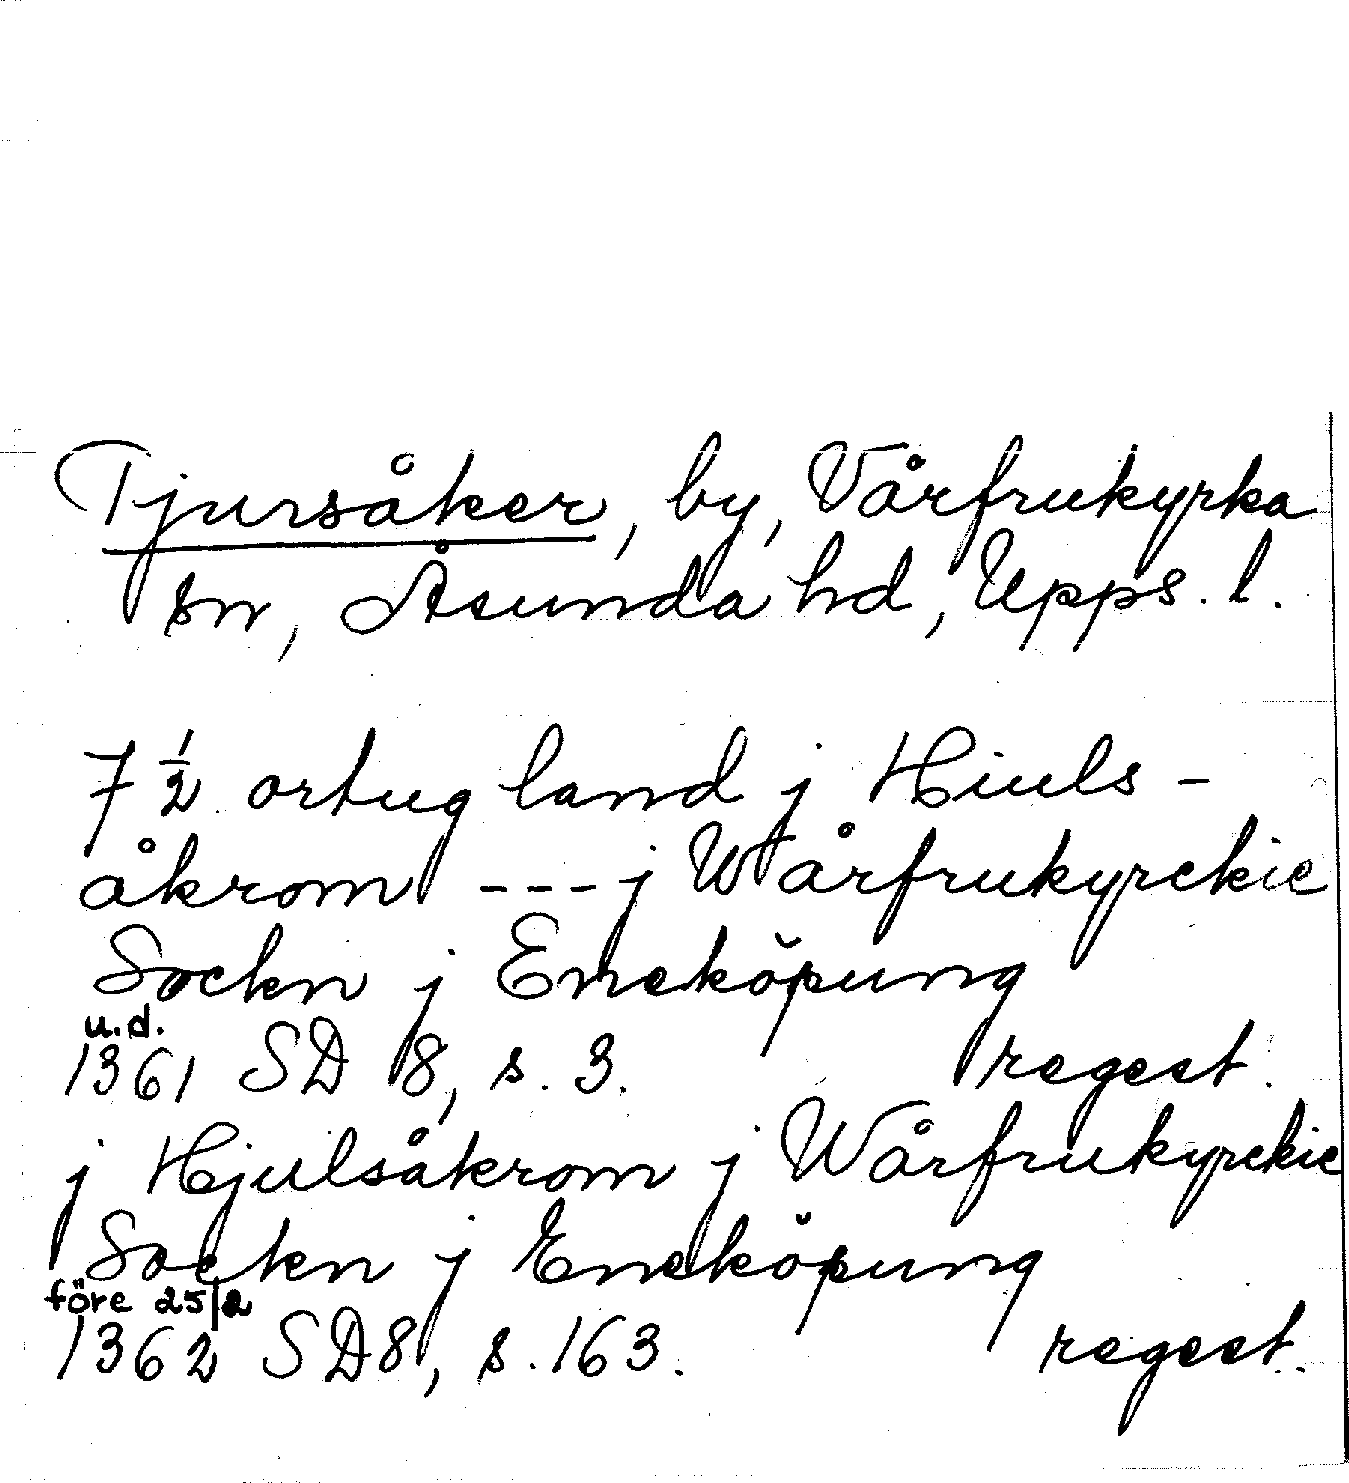 Tjursåker, by, Vårfrukyrka
sn, Åsunda hd, Upps. l.
7 1/2 ortug land j Hiuls-
åkrom --- j Wårfrukyrckie
Sockn j Eneköpung
u.d.
1361 SD 8, s. 3. regest.
j Hjulsåkrom j Wårfrukyrckie
Sockn j Eneköpung
före 25/2
1362 SD 8, s. 163. regest.